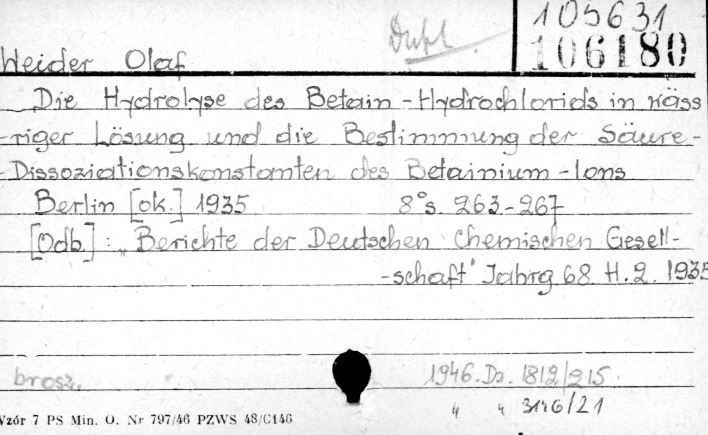 Dubl. 105631
106180
Weider Olaf
Die Hydrolyse des Betain-Hydrochlorids in wäss
-riger Lösung und die Bestimmung der Säure-
-Dissoziationskonstanten des Betainium-Ions
Berlin [ok.] 1935 8° s. 263-267
[Odb.] : „Berichte der Deutschen Chemischen Gesell-
-schaft" Jahrg 68. H. 2. 1935
brosz. 1946. Dz. 1812/215
„ „ 3146/21
Wzór 7 PS Min. O. Nr 797/46 PZWS 48/C146